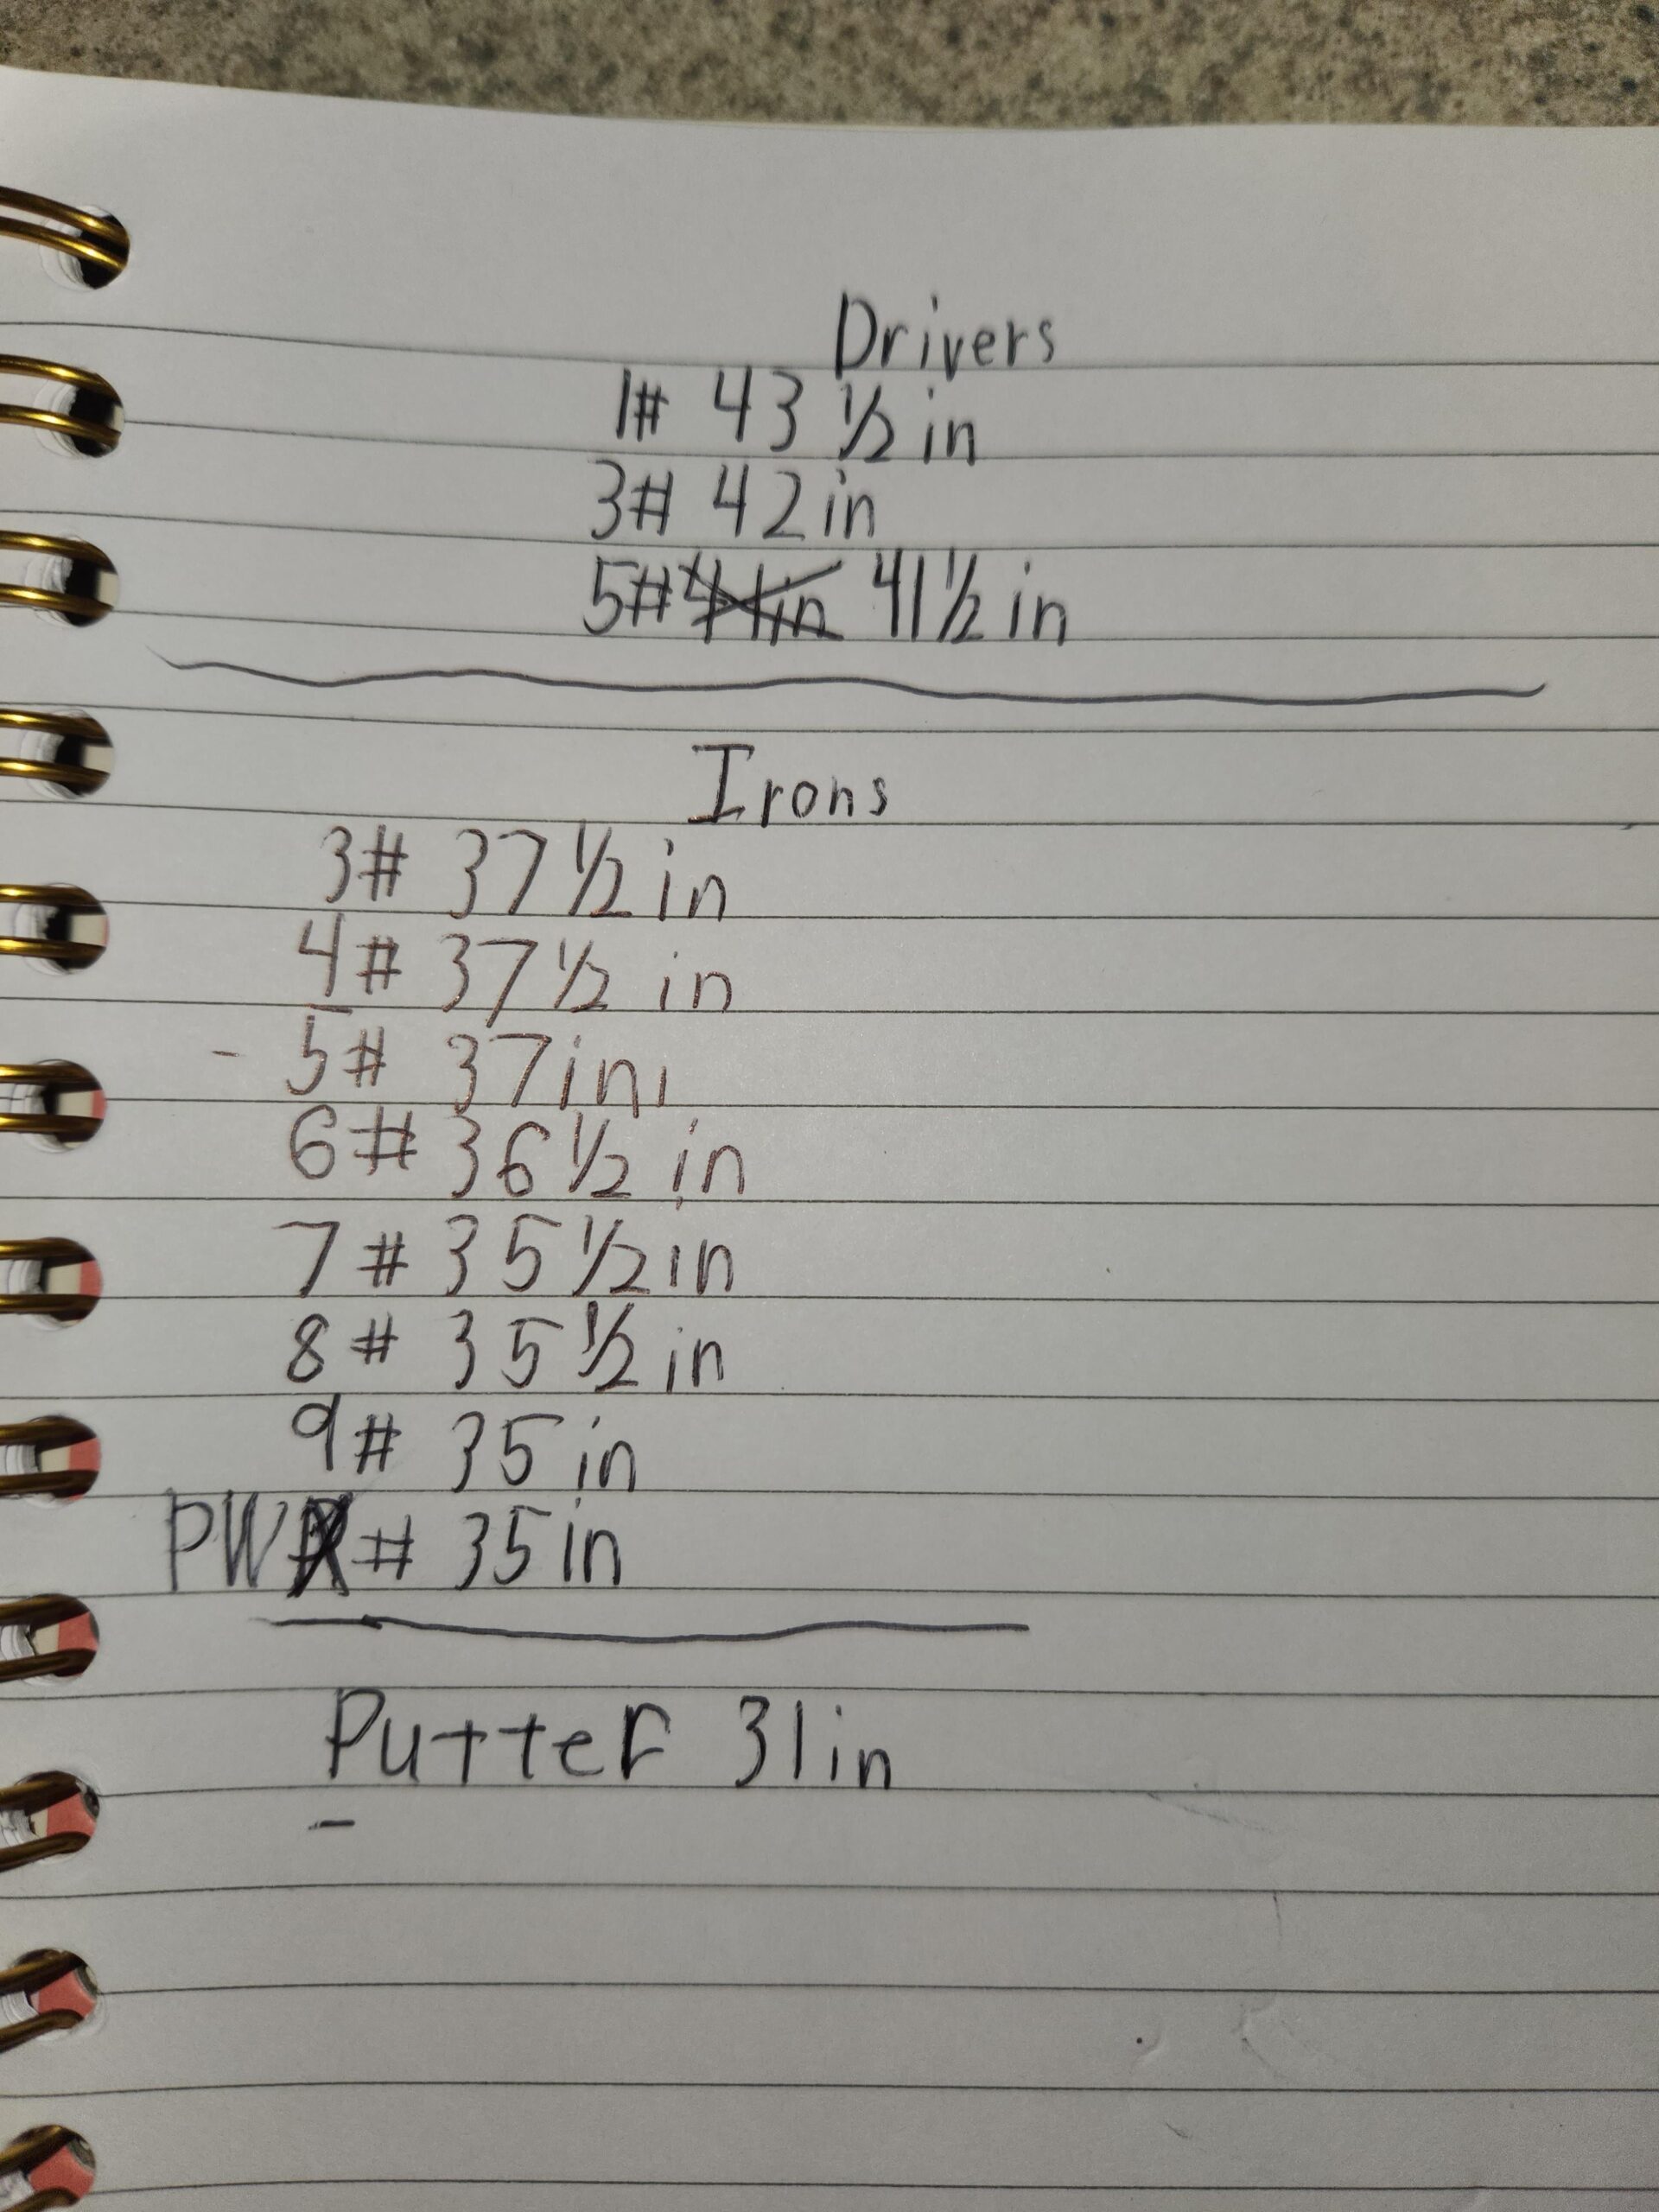 Drivers
1# 43 1/2 in
3# 42in
5# 41in 41 1/2 in
Irons
3# 37 1/2 in
4# 37 1/2 in
- 5# 37in
6# 36 1/2 in
7# 35 1/2 in
8# 35 1/2 in
9# 35 in
PW # 35 in
Putter 31in
-